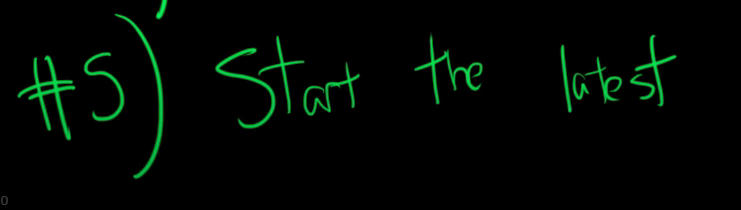 #5) Start the latest
0